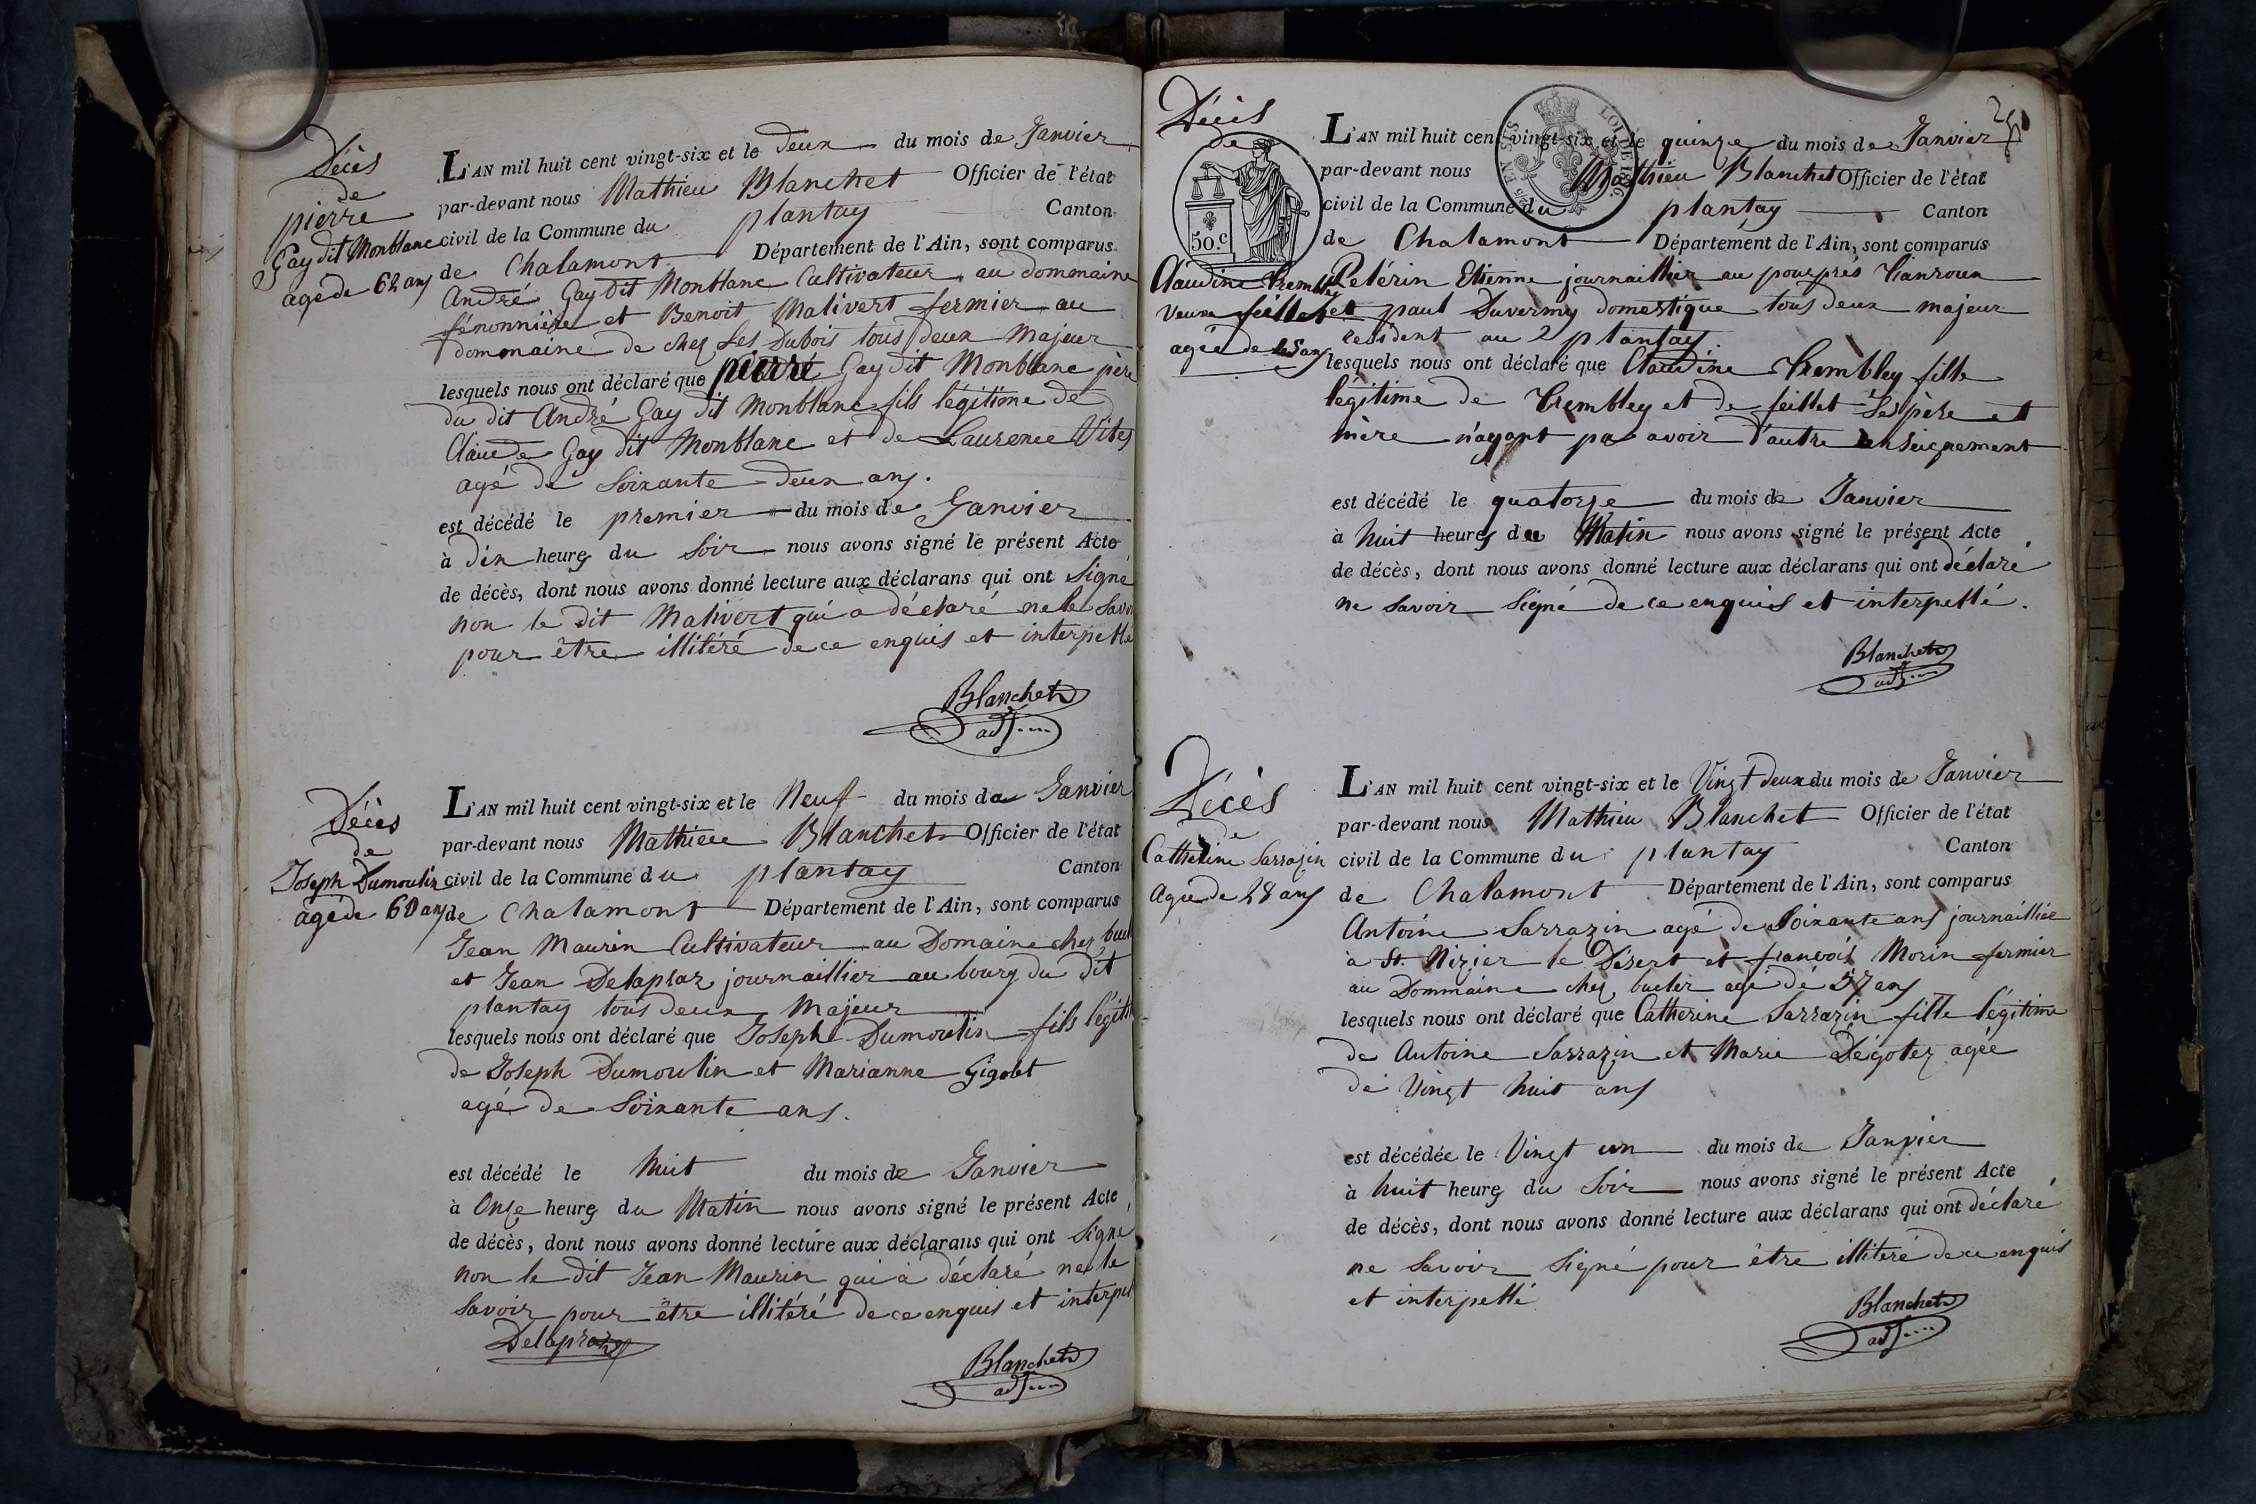 Décès
de
pierre
Gay dit Montblanc
agé de 62 ans
L'AN mil huit cent vingt-six et le deux du mois de Janvier
par-devant nous Mathieu Blanchet Officier de l'état
civil de la Commune du plantay Canton
de Chalamont Département de l'Ain, sont comparus
André Gay dit Montblanc Cultivateur au dommaine
et Benoit Malivert fermier au
dommaine de chez Les Dubois tous deux Majeur
lesquels nous ont déclaré que pierre Gay dit Montblanc père
du dit André Gay dit Montblanc fils légitime de
Claude Gay dit Montblanc et de Laurence
agé de Soixante deux ans.
est décédé le premier du mois de Janvier
à dix heures du Soir nous avons signé le présent Acte
de décès, dont nous avons donné lecture aux déclarans qui ont Signé
non le dit Malivert qui a déclaré ne le Savoir
pour être illitéré de ce enquis et interpellé
Blanchet
adj
Décès
de
Joseph Dumoulin
agé de 60 ans
L'AN mil huit cent vingt-six et le Neuf du mois de Janvier
par-devant nous Mathieu Blanchet Officier de l'état
civil de la Commune du plantay Canton
de Chalamont Département de l'Ain, sont comparus
Jean Maurin Cultivateur au Domaine chez
et Jean Delapraz journaillier au bourg du dit
plantay tous deux Majeur
lesquels nous ont déclaré que Joseph Dumoulin fils légiti
de Joseph Dumoulin et Marianne Gigolet
agé de Soixante ans.
est décédé le huit du mois de Janvier
à Onze heures du Matin nous avons signé le présent Acte
de décès, dont nous avons donné lecture aux déclarans qui ont Signé
non le dit Jean Maurin qui à déclaré ne le
Savoir pour être illitéré de ce enquis et interpel
Delapraz
Blanchet
adj
Décès
de
50.c
Claudine Trembley
Veuve feillet
agée de
L'AN mil huit cent vingt-six et le quinze du mois de Janvier
par-devant nous Mathieu Blanchet Officier de l'état
civil de la Commune du plantay Canton
de Chalamont Département de l'Ain, sont comparus
Pelérin Etienne journaillier au pourprés
et paul Duvermy domestique tous deux majeur
résident au plantay
lesquels nous ont déclaré que Claudine Trembley fille
légitime de Trembley et de feillet Ses père et
mère n'ayant pu avoir d'autre enseignement
est décédé le quatorze du mois de Janvier
à huit heures du Matin nous avons signé le présent Acte
de décès, dont nous avons donné lecture aux déclarans qui ont déclaré
ne Savoir Signé de ce enquis et interpellé.
Blanchet
adj
Décès
de
Catherine Sarrazin
Agée de 28 ans
L'AN mil huit cent vingt-six et le Vingt deux du mois de Janvier
par-devant nous Mathieu Blanchet Officier de l'état
civil de la Commune du plantay Canton
de Chalamont Département de l'Ain, sont comparus
Antoine Sarrazin agé de Soixante ans journaillié
à St. Nizier le Désert et françois Morin fermier
au Dommaine chez bucler agé de 57 ans
lesquels nous ont déclaré que Catherine Sarrazin fille légitime
de Antoine Sarrazin et Marie Dégotez agée
de Vingt huit ans
est décédée le Vingt un du mois de Janvier
à huit heures du Soir nous avons signé le présent Acte
de décès, dont nous avons donné lecture aux déclarans qui ont déclaré
ne Savoir Signé pour être illitéré de ce enquis
et interpellé
Blanchet
adj